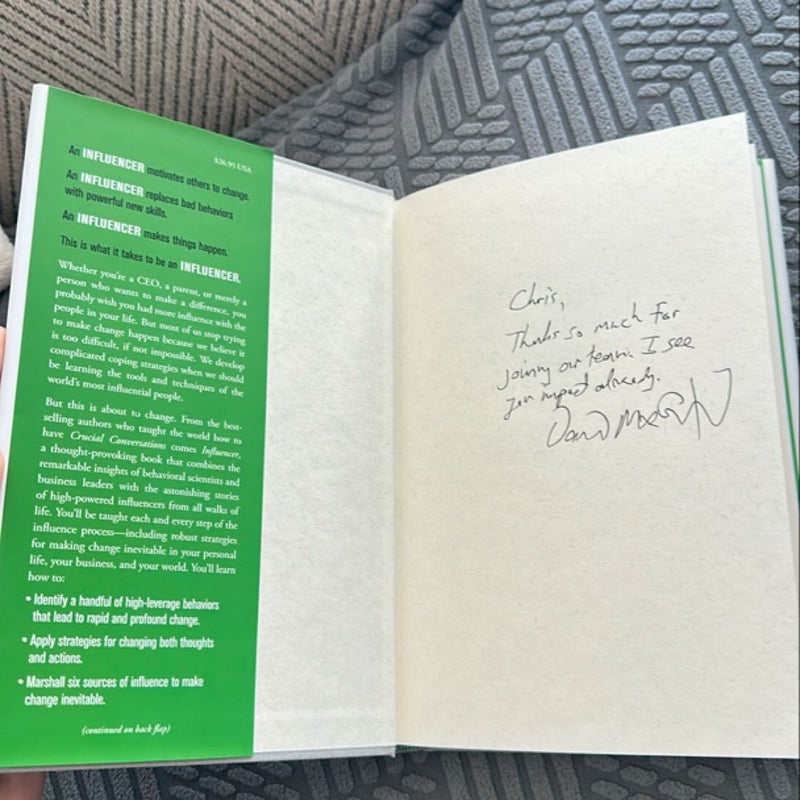 $26.95 USA
An INFLUENCER motivates others to change.
An INFLUENCER replaces bad behaviors
with powerful new skills.
An INFLUENCER makes things happen.
This is what it takes to be an INFLUENCER.
Whether you're a CEO, a parent, or merely a
person who wants to make a difference, you
probably wish you had more influence with the
people in your life. But most of us stop trying
to make change happen because we believe it
is too difficult, if not impossible. We develop
complicated coping strategies when we should
be learning the tools and techniques of the
world's most influential people.
But this is about to change. From the best-
selling authors who taught the world how to
have Crucial Conversations comes Influencer,
a thought-provoking book that combines the
remarkable insights of behavioral scientists and
business leaders with the astonishing stories
of high-powered influencers from all walks of
life. You'll be taught each and every step of the
influence process—including robust strategies
for making change inevitable in your personal
life, your business, and your world. You'll learn
how to:
• Identify a handful of high-leverage behaviors
that lead to rapid and profound change.
• Apply strategies for changing both thoughts
and actions.
• Marshall six sources of influence to make
change inevitable.
(continued on back flap)
Chris,
Thanks so much for
joining our team. I see
your impact already.
David